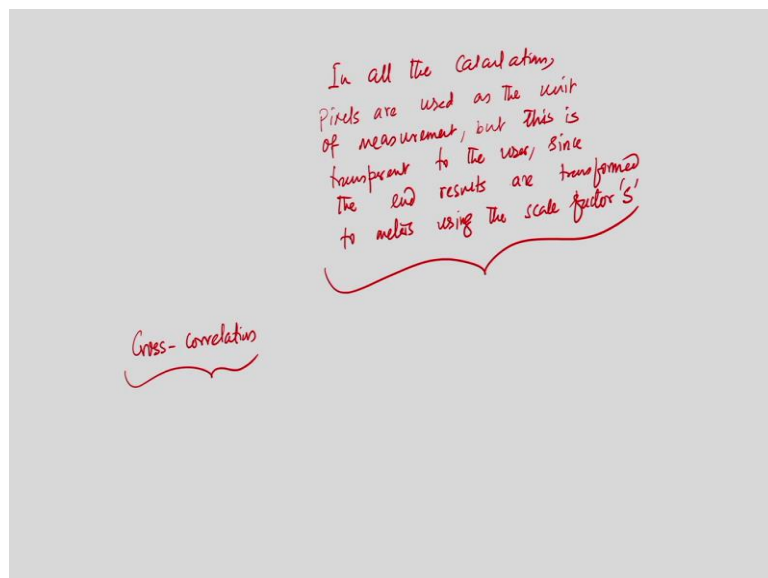 In all the Calculations,
Pixels are used as the unit
of measurement, but this is
transparent to the user, since
the end results are transformed
to meters using the scale factor 'S'
Cross-correlations